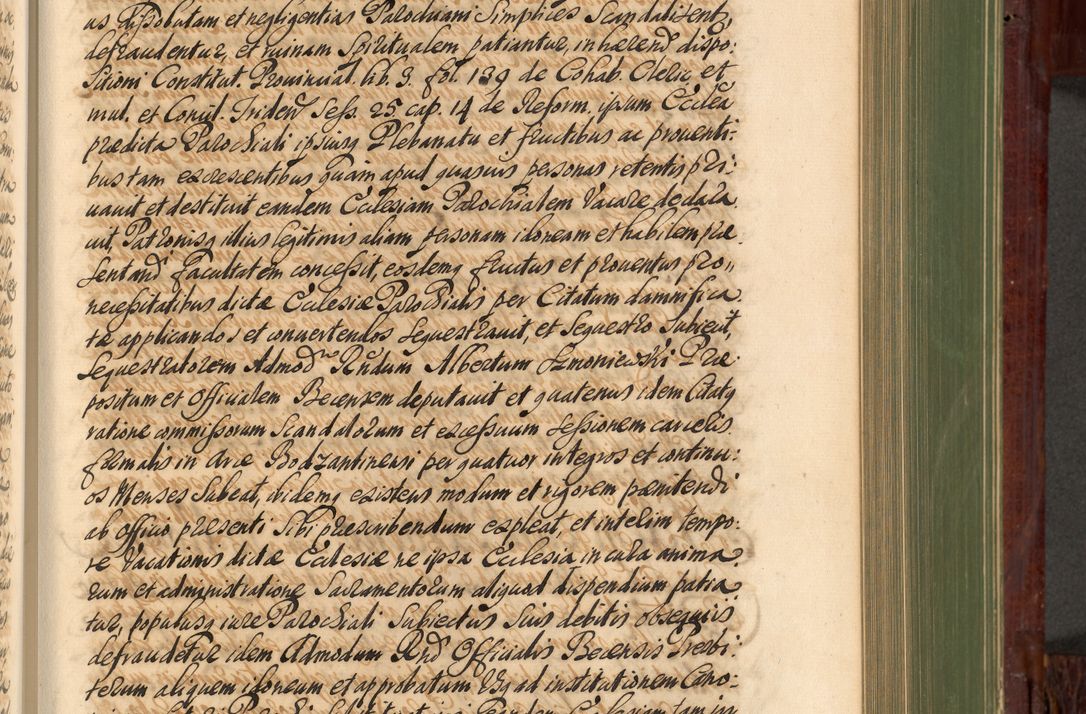 us dissolutam et negligentias Parochiani Simplices Scandalisent,
defraudentur, et ruinam Spiritualem patiantur, inhærend dispo:
sitioni Constitut. Provincial. lib. 3. fol. 139 de Cohab. Cleric et
mul. et Concil. Triden Sess. 25 cap. 14 de Reform, ipsum Ecclea
prædicta Parochiali ipsiusq Plebanatu et fructibus ac proventi:
bus tam excrescentibus quam apud quasvis personas retentis pri:
vavit et destituit eandem Ecclesiam Parochialem Vacare declara
vit, Patronisq illius legitimis aliam personam idoneam et habilem præ
sentand facultatem concessit, eosdemq fructus et proventus pro
necessitatibus dictæ Ecclesiæ Parochialis per Citatum damnifica
tæ applicandos et convertendos Sequestravit, et Sequestro Subiecit,
Sequestratorem Admod Rndum Albertum Szmoniewski Præ
positum et Officialem Becensem deputavit et quatenus idem Citatq
ratione commissorum Scandalorum et excessuum Sessionem carceris
formalis in Arce Bodzantinensi per quatuor integros et continu:
os Menses Subeat, ibidemq existens modum et rigorem pænitendi
ab Officio præsenti Sibi præscribendum expleat, et interim tempo:
re Vacationis dictæ Ecclesiæ ne ipsa Ecclesia in cura anima
rum et administratione Sacramentorum aliquod dispendium patia
tur, populusq iure Parochiali Subiectus Suis debitis obsequiis
defraudetur idem Admodum Rnd Officialis Becensis Presbi:
terum aliquem idoneum et approbatum Usq ad institutionem Cano: